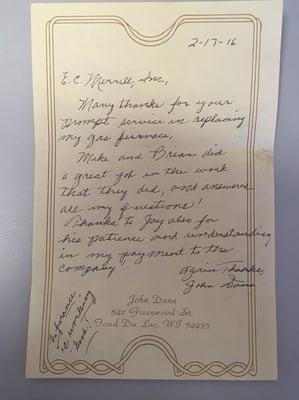 2-17-16
E.C. Merrill, Inc,
Many thanks for your
prompt service in replacing
my gas furnace.
Mike and Brian did
a great job in the work
that they did, and answered
all my questions!
Thanks to Jay also for
his patience and understanding
in my payment to the
company.
Again Thanks,
John Dana
John Dana
542 Greenwood St.
Fond Du Lac, WI 54935
Furnace
is working
good!